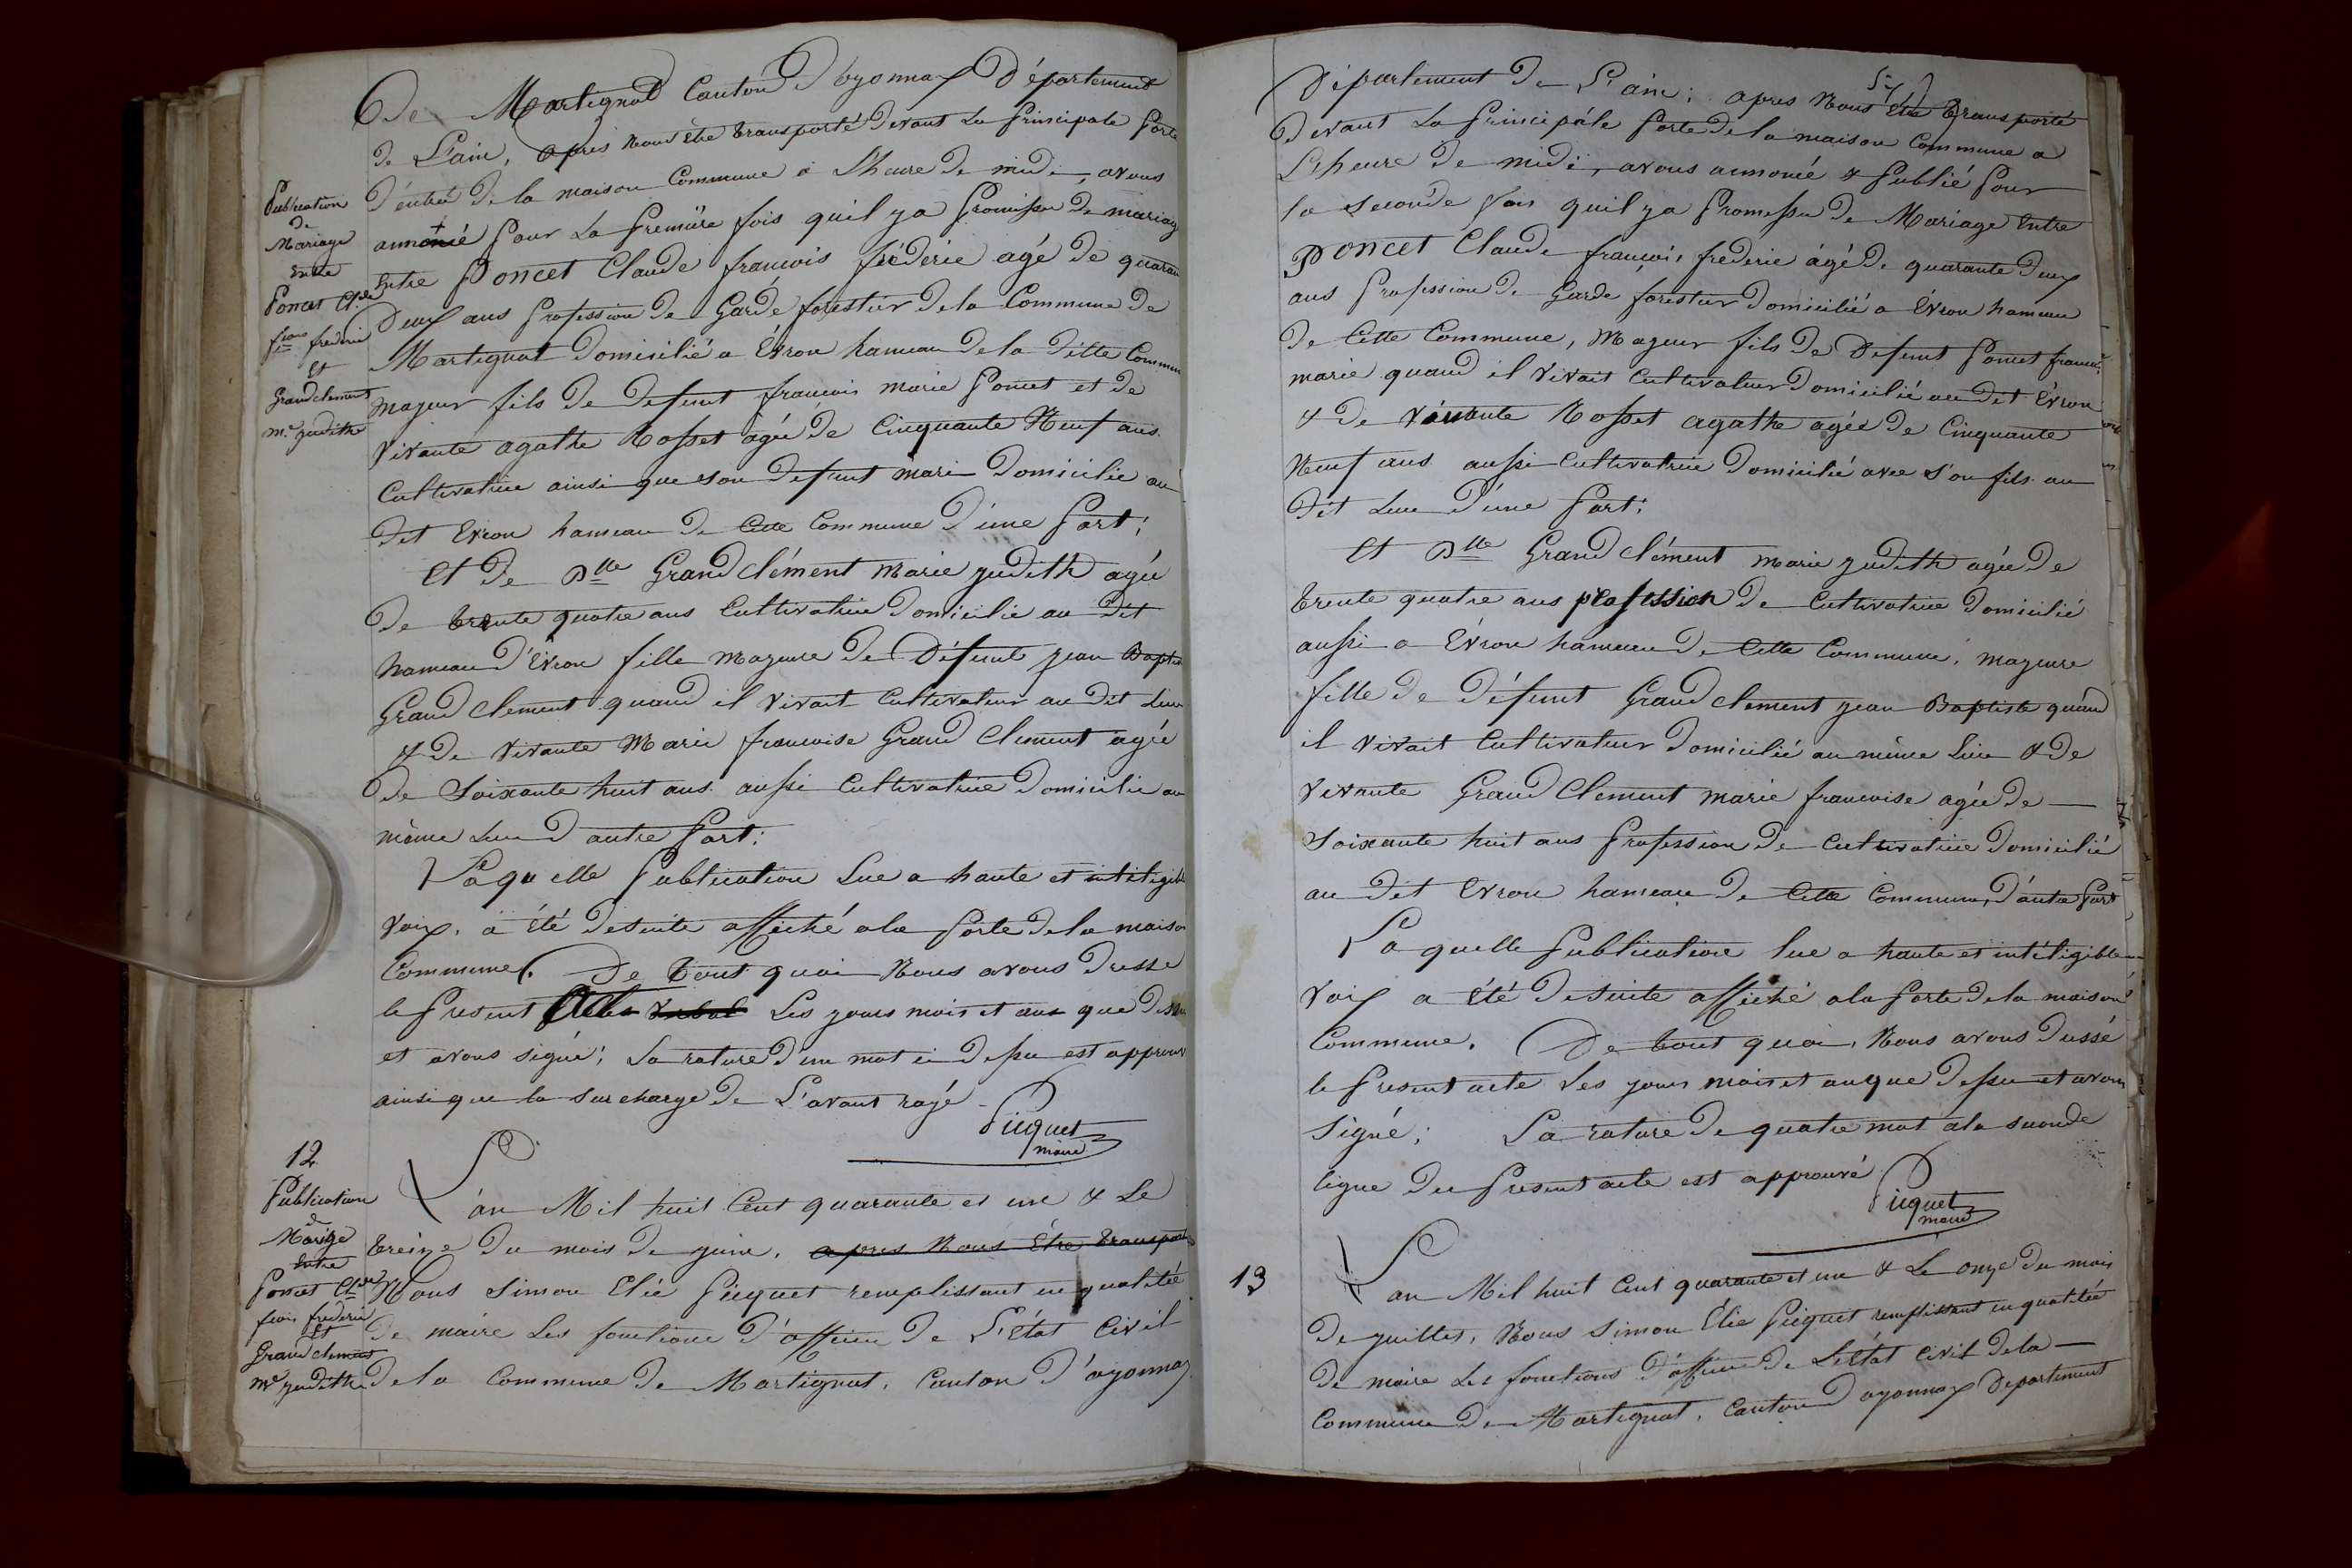 de Martignat Canton d'oyonnax Département
de L'ain, après Nous être transporté devant La Principale Porte
d'entré de la maison Commune à L'heure de midi, avons
annoncé Pour La Premiére fois quil y a Promisse de mariage
Entre Poncet Claude francois fréderic agé de quaran
Deux ans Profession de Garde forestier de la Commune de
Martignat Domicilié a Évron hameau de la ditte Commun
majeur fils de defunt francois marie Poncet et de
Vivante agathe Rosset agée de Cinquante Neuf ans
Cultivatrice ainsi que son defunt mari Domicilié au
dit Evron hameau de Cette Commune d'une Part;
Publication
de
Mariage
Entre
Poncet Cl.de
fcois frederic
Et
Grandclement
m.e judith
Et de Dlle Grand clément Marie judith agée
de trente quatre ans Cultivatrice Domicilié au dit
hameau d'Evron fille Majeure de Défunt jean Baptis
Grand Clement quand il vivait Cultivateur au dit Lieu
& de vivante Marie francoise Grand Clement agée
de Soixante huit ans aussi Cultivatrice Domicilié au
même Lieu d'autre Part:
Laquelle Publication Lue a haute et intiligible
Voix, a été desuite affiché a la Porte de la maison
Commune. De tout quoi Nous avons Dressé
le Present Acte Verbal Les jours mois et ans que dessu
et avons signé; La rature d'un mot ci dessu est approuv
ainsi que la surcharge de L'avant rayé
Picquet
maire
12
Publication
de
Marige
Entre
Poncet Cl.de
fcois frederic
Et
Grand clement
m.e judith
L'an Mil huit Cent quarante et un & Le
treize du mois de juin, apres Nous Être transporté
Nous Simon Elie Picquet remplissant en qualitée
de maire Les fonctions d'afficier de L'Etat Civil
de la Commune de Martignat, Canton d'oyonnax
Département de L'ain; apres Nous Être transporté
devant La Principâle Porte de la maison Commune a
L'heure de midi, avons annoncé & Publié Pour
la Seconde fois quil y a Promesse de Mariage Entre
Poncet Claude francois frederic àgé de quarante deux
ans Profession de Garde forestier Domicilié a Évron hameau
de Cette Commune, Majeur fils de Defunt Poncet francois
marie quand il Vivait Cultivateur Domicilié au dit Évron
& de Vivante Rosset agathe agée de Cinquante
Neuf ans aussi Cultivatrice Domicilié avec s'on fils au
dit Lieu d'une Part;
Et Dlle Grand Clément Marie judith agée de
trente quatre ans profession de Cultivatrice Domicilié
aussi a Évron hameau de Cette Commune, majeure
fille de Défunt Grand clement jean Baptiste quand
il vivait Cultivateur Domicilié au même Lieu & de
Vivante Grand Clement Marie francoise agée de
Soixante huit ans Profession de Cultivatrice Domicilié
au dit Evron hameau de Cette Commune, d'autre Part
La quelle Publication lue a haute et intéligible
Voix a été desuite affiché a la Porte de la maison
Commune. De tout quoi, Nous avons Dressé
le Present acte Les jours mois et an que dessu et avons
Signé; La rature de quatre mot a la seconde
ligne du Present acte est approuvé
Picquet
maire
13
L'an Mil huit Cent quarante et un & Le onze du mois
de juillet, Nous Simon Élie Picquet remplissant en qualitée
de maire Les fonctions d'afficier de L'État Civil de la
Commune de Martignat, Canton d'oyonnax Departement